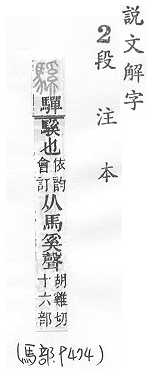 説文解字
2段注本
騱 驒騱也依韵會訂从馬奚聲胡雞切十六部
(馬部.P474)